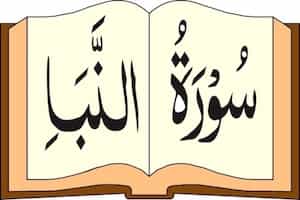 سُورَةُ النَّبَاِ